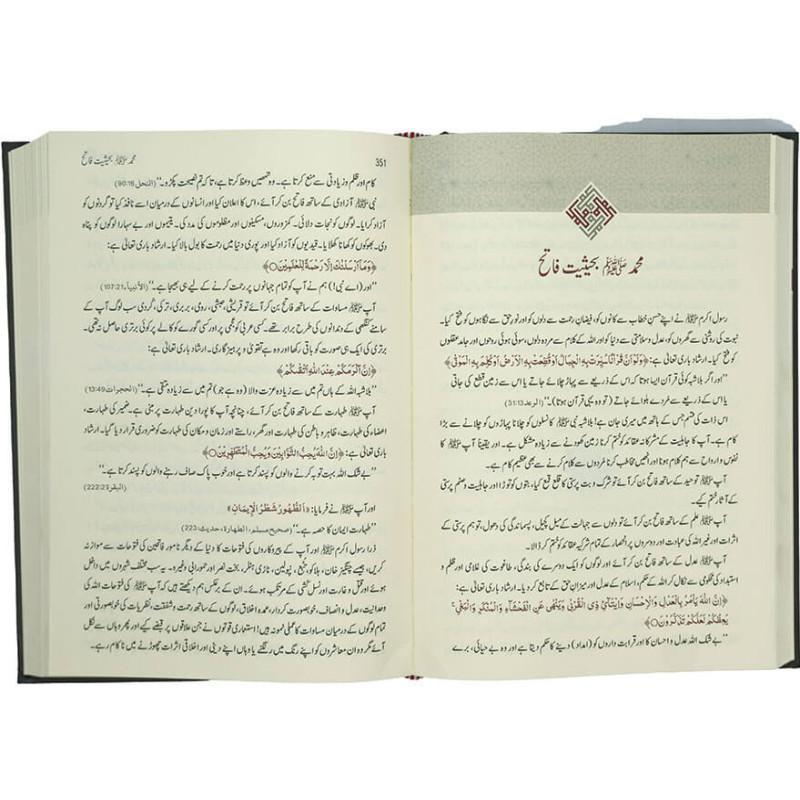 محمد ﷺ بحیثیت فاتح
رسول اکرم ﷺ نے اپنے حسن خطاب سے کانوں کو، فیضانِ رحمت سے دلوں کو اور نورِ حق سے نگاہوں کو فتح کیا۔
نبوت کی روشنی سے گھروں کو، عدل و سلامتی سے دنیا کو اور اللہ کے کلام سے مردہ دلوں، سوئی ہوئی روحوں اور جامد عقلوں
کو فتح کیا۔ ارشاد باری تعالیٰ ہے: ﴿وَلَوْ أَنَّ قُرْاٰنًا سُيِّرَتْ بِهِ الْجِبَالُ أَوْ قُطِّعَتْ بِهِ الْاَرْضُ أَوْ كُلِّمَ بِهِ الْمَوْتٰى﴾
’’اور اگر بلاشبہ کوئی قرآن ایسا ہوتا کہ اس کے ذریعے سے پہاڑ چلائے جاتے یا اس سے زمین قطع کی جاتی
یا اس کے ذریعے سے مردے بلوائے جاتے (تو وہ یہی قرآن ہوتا)۔‘‘ (الرعد 13:31)
اس ذات کی قسم جس کے ہاتھ میں میری جان ہے! بلاشبہ نبی ﷺ کا نسلوں کو چلانا پہاڑوں کو چلانے سے بڑا
کام ہے۔ آپ کا جاہلیت کے مشرکانہ عقائد کو ختم کرنا زمین کھودنے سے زیادہ مشکل ہے۔ اور یقیناً آپ کا
نفوس و ارواح سے ہم کلام ہونا اور انھیں مخاطب کرنا مردوں سے کلام کرنے سے بھی بڑا کام ہے۔
آپ ﷺ توحید کے ساتھ فاتح بن کر آئے تو شرک و بت پرستی کا قلع قمع کیا، بتوں کو توڑا اور جاہلیت و صنم پرستی
کے آثار ختم کیے۔
آپ ﷺ علم کے ساتھ فاتح بن کر آئے تو دلوں سے جہالت کے میل کچیل، پسماندگی کی دھول، توہم پرستی کے
اثرات اور غیر اللہ کی عبادت اور دوسروں پر انحصار کے تمام شرکیہ عقائد کو ختم کر ڈالا۔
آپ ﷺ عدل کے ساتھ فاتح بن کر آئے اور لوگوں کو ایک دوسرے کی بندگی، طاغوت کی غلامی اور ظلم و
استبداد کی محکومی سے نکال کر اللہ کے حکم، اسلام کے عدل اور میزانِ حق کے تابع کر دیا۔ ارشاد باری تعالیٰ ہے:
﴿إِنَّ اللّٰهَ يَأْمُرُ بِالْعَدْلِ وَالْإِحْسَانِ وَإِيتَآئِ ذِي الْقُرْبٰى وَيَنْهٰى عَنِ الْفَحْشَآءِ وَالْمُنْكَرِ وَالْبَغْيِ ۚ
يَعِظُكُمْ لَعَلَّكُمْ تَذَكَّرُوْنَ﴾
’’بے شک اللہ عدل و احسان کا اور قرابت داروں کو (امداد) دینے کا حکم دیتا ہے اور وہ بے حیائی، برے
محمد ﷺ بحیثیت فاتح 351
کام اور ظلم و زیادتی سے منع کرتا ہے۔ وہ تمھیں وعظ کرتا ہے، تاکہ تم نصیحت پکڑو۔‘‘ (النحل 90:16)
نبی ﷺ آزادی کے ساتھ فاتح بن کر آئے، اس کا اعلان کیا اور انسانوں کے درمیان اسے نافذ کیا تو گردنوں کو
آزاد کرایا۔ لوگوں کو نجات دلائی۔ کمزوروں، مسکینوں اور مظلوموں کی مدد کی۔ یتیموں اور بے سہارا لوگوں کو پناہ
دی۔ بھوکوں کو کھانا کھلایا۔ قیدیوں کو آزاد کیا اور پوری دنیا میں رحمت کا بول بالا کیا۔ ارشاد باری تعالیٰ ہے:
﴿وَمَآ أَرْسَلْنٰكَ إِلَّا رَحْمَةً لِّلْعٰلَمِيْنَ﴾
’’اور (اے نبی!) ہم نے آپ کو تمام جہانوں پر رحمت کرنے کے لیے ہی بھیجا ہے۔‘‘ (الأنبیاء 107:21)
آپ ﷺ مساوات کے ساتھ فاتح بن کر آئے تو قریشی، حبشی، رومی، بربری، ترکی، کردی سب لوگ آپ کے
سامنے کنگھی کے دندانوں کی طرح برابر تھے۔ کسی عربی کو عجمی پر اور کسی گورے کو کالے پر کوئی برتری حاصل نہ تھی۔
برتری کی ایک ہی صورت کو باقی رکھا اور وہ ہے تقویٰ و پرہیزگاری۔ ارشاد باری تعالیٰ ہے:
﴿إِنَّ أَكْرَمَكُمْ عِنْدَ اللّٰهِ أَتْقٰكُمْ﴾
’’بلاشبہ اللہ کے ہاں تم میں سے زیادہ عزت والا (وہ ہے جو) تم میں سے زیادہ متقی ہے۔‘‘ (الحجرات 13:49)
آپ ﷺ طہارت کے ساتھ فاتح بن کر آئے، چنانچہ آپ کا پورا دین طہارت پر مبنی ہے۔ ضمیر کی طہارت،
اعضاء کی طہارت، ظاہر و باطن کی طہارت اور گھر، راستے اور زمان و مکان کی طہارت کو ضروری قرار دیا گیا۔ ارشاد
باری تعالیٰ ہے: ﴿إِنَّ اللّٰهَ يُحِبُّ التَّوّٰبِيْنَ وَيُحِبُّ الْمُتَطَهِّرِيْنَ﴾
’’بے شک اللہ بہت توبہ کرنے والوں کو پسند کرتا ہے اور خوب پاک صاف رہنے والوں کو پسند کرتا ہے۔‘‘
(البقرة 222:2)
اور آپ ﷺ نے فرمایا: «اَلطُّهُورُ شَطْرُ الْإِيمَانِ»
’’طہارت ایمان کا حصہ ہے۔‘‘ (صحیح مسلم، الطهارة، حدیث: 223)
ذرا رسول اکرم ﷺ اور آپ کے پیروکاروں کی فتوحات کا دنیا کے دیگر نامور فاتحین کی فتوحات سے موازنہ
کریں، جیسے چنگیز خان، ہلاکو، تبع، نپولین، نازی ہٹلر، بخت نصر اور حمورابی وغیرہ۔ یہ سب مختلف شہروں میں داخل
ہوئے اور قتل و غارت اور نسل کشی کے مرتکب ہوئے۔ ان کے برعکس ہم دیکھتے ہیں کہ آپ ﷺ کی فتوحات اللہ کی
وحدانیت، عدل و انصاف، خوبصورت کردار، عمدہ اخلاق، لوگوں کے ساتھ رحمت و شفقت، نظریات کی خوبصورتی اور
تمام لوگوں کے درمیان مساوات کا عملی نمونہ ہیں! استعماری قوتوں نے جن علاقوں پر قبضے کیے اور پھر وہاں سے نکل
آئے مگر وہ ان معاشروں کو اپنے رنگ میں رنگنے یا وہاں اپنے دینی اور اخلاقی اثرات چھوڑنے میں ناکام رہے۔